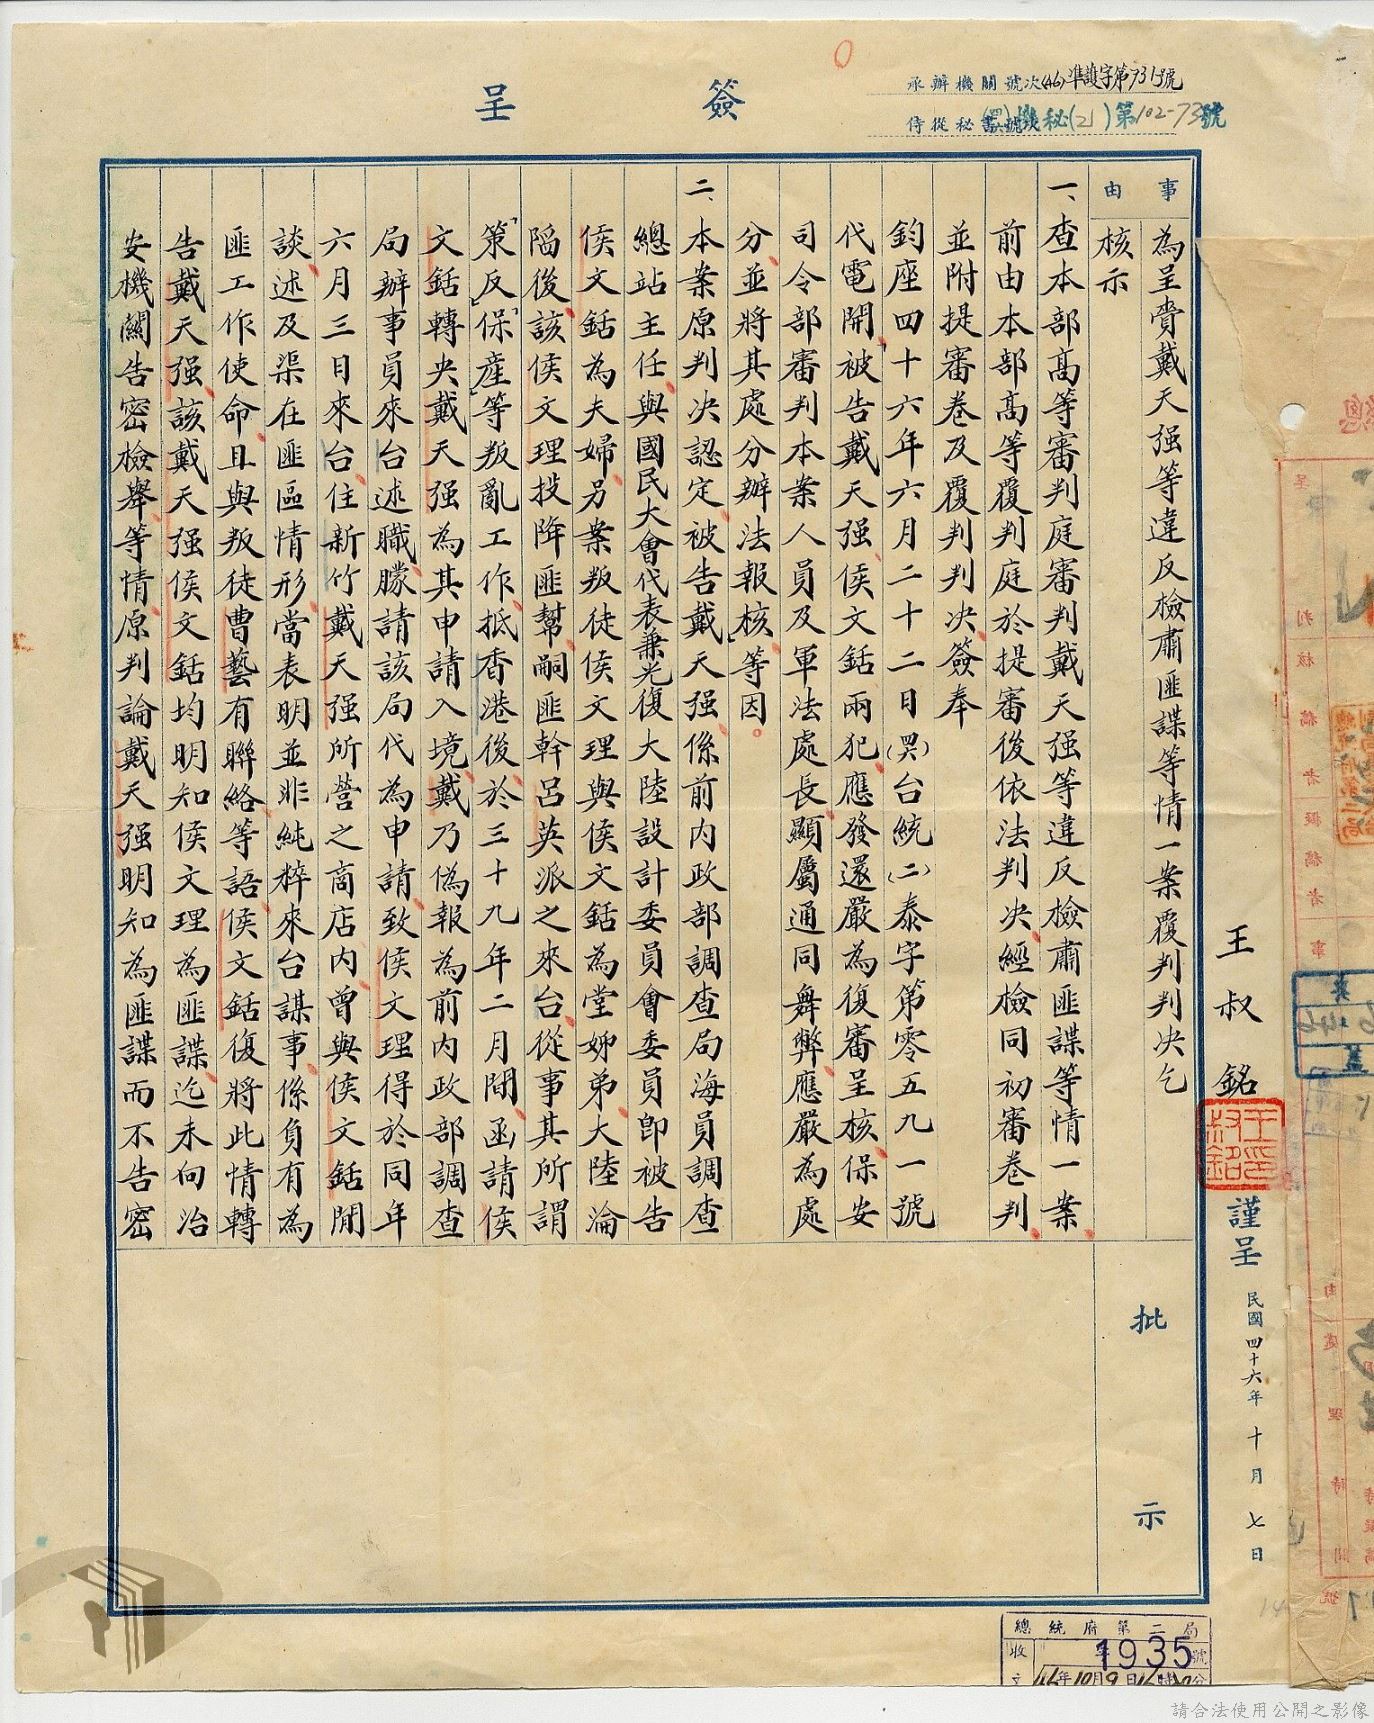 簽呈
承辦機關號次(46)準護字第731號
侍從秘書號次 機秘(乙)第102-73號
事由
為呈賫戴天强等違反檢肅匪諜等情一案覆判判決乞
核示
一、查本部高等審判庭審判戴天强等違反檢肅匪諜等情一案
前由本部高等覆判庭於提審後依法判決經檢同初審卷判
並附提審卷及覆判判決簽奉
鈞座四十六年六月二十二日(四六)台統(二)泰字第零五九一號
代電開「被告戴天强侯文銛兩犯應發還嚴為復審呈核保安
司令部審判本案人員及軍法處長顯屬通同舞弊應嚴為處
分並將其處分辦法報核」等因。
二、本案原判決認定被告戴天强係前內政部調查局海員調查
總站主任與國民大會代表兼光復大陸設計委員會委員即被告
侯文銛為夫婦另案叛徒侯文理與侯文銛為堂姊弟大陸淪
陷後該侯文理投降匪幫嗣匪幹呂英派之來台從事其所謂
「策反」「保產」等叛亂工作抵香港後於三十九年二月間函請侯
文銛轉央戴天强為其申請入境戴乃偽報為前內政部調查
局辦事員來台述職矇請該局代為申請致侯文理得於同年
六月三日來台住新竹戴天强所營之商店內曾與侯文銛閒
談述及渠在匪區情形當表明並非純粹來台謀事係負有為
匪工作使命且與叛徒曹藝有聯絡等語侯文銛復將此情轉
告戴天强該戴天强侯文銛均明知侯文理為匪諜迄未向治
安機關告密檢舉等情原判論戴天强明知為匪諜而不告密
批示
王叔銘
王叔銘印
謹呈
民國四十六年十月七日
總統府第二局
收文 1935號
46年10月9日16時
請合法使用公開之影像